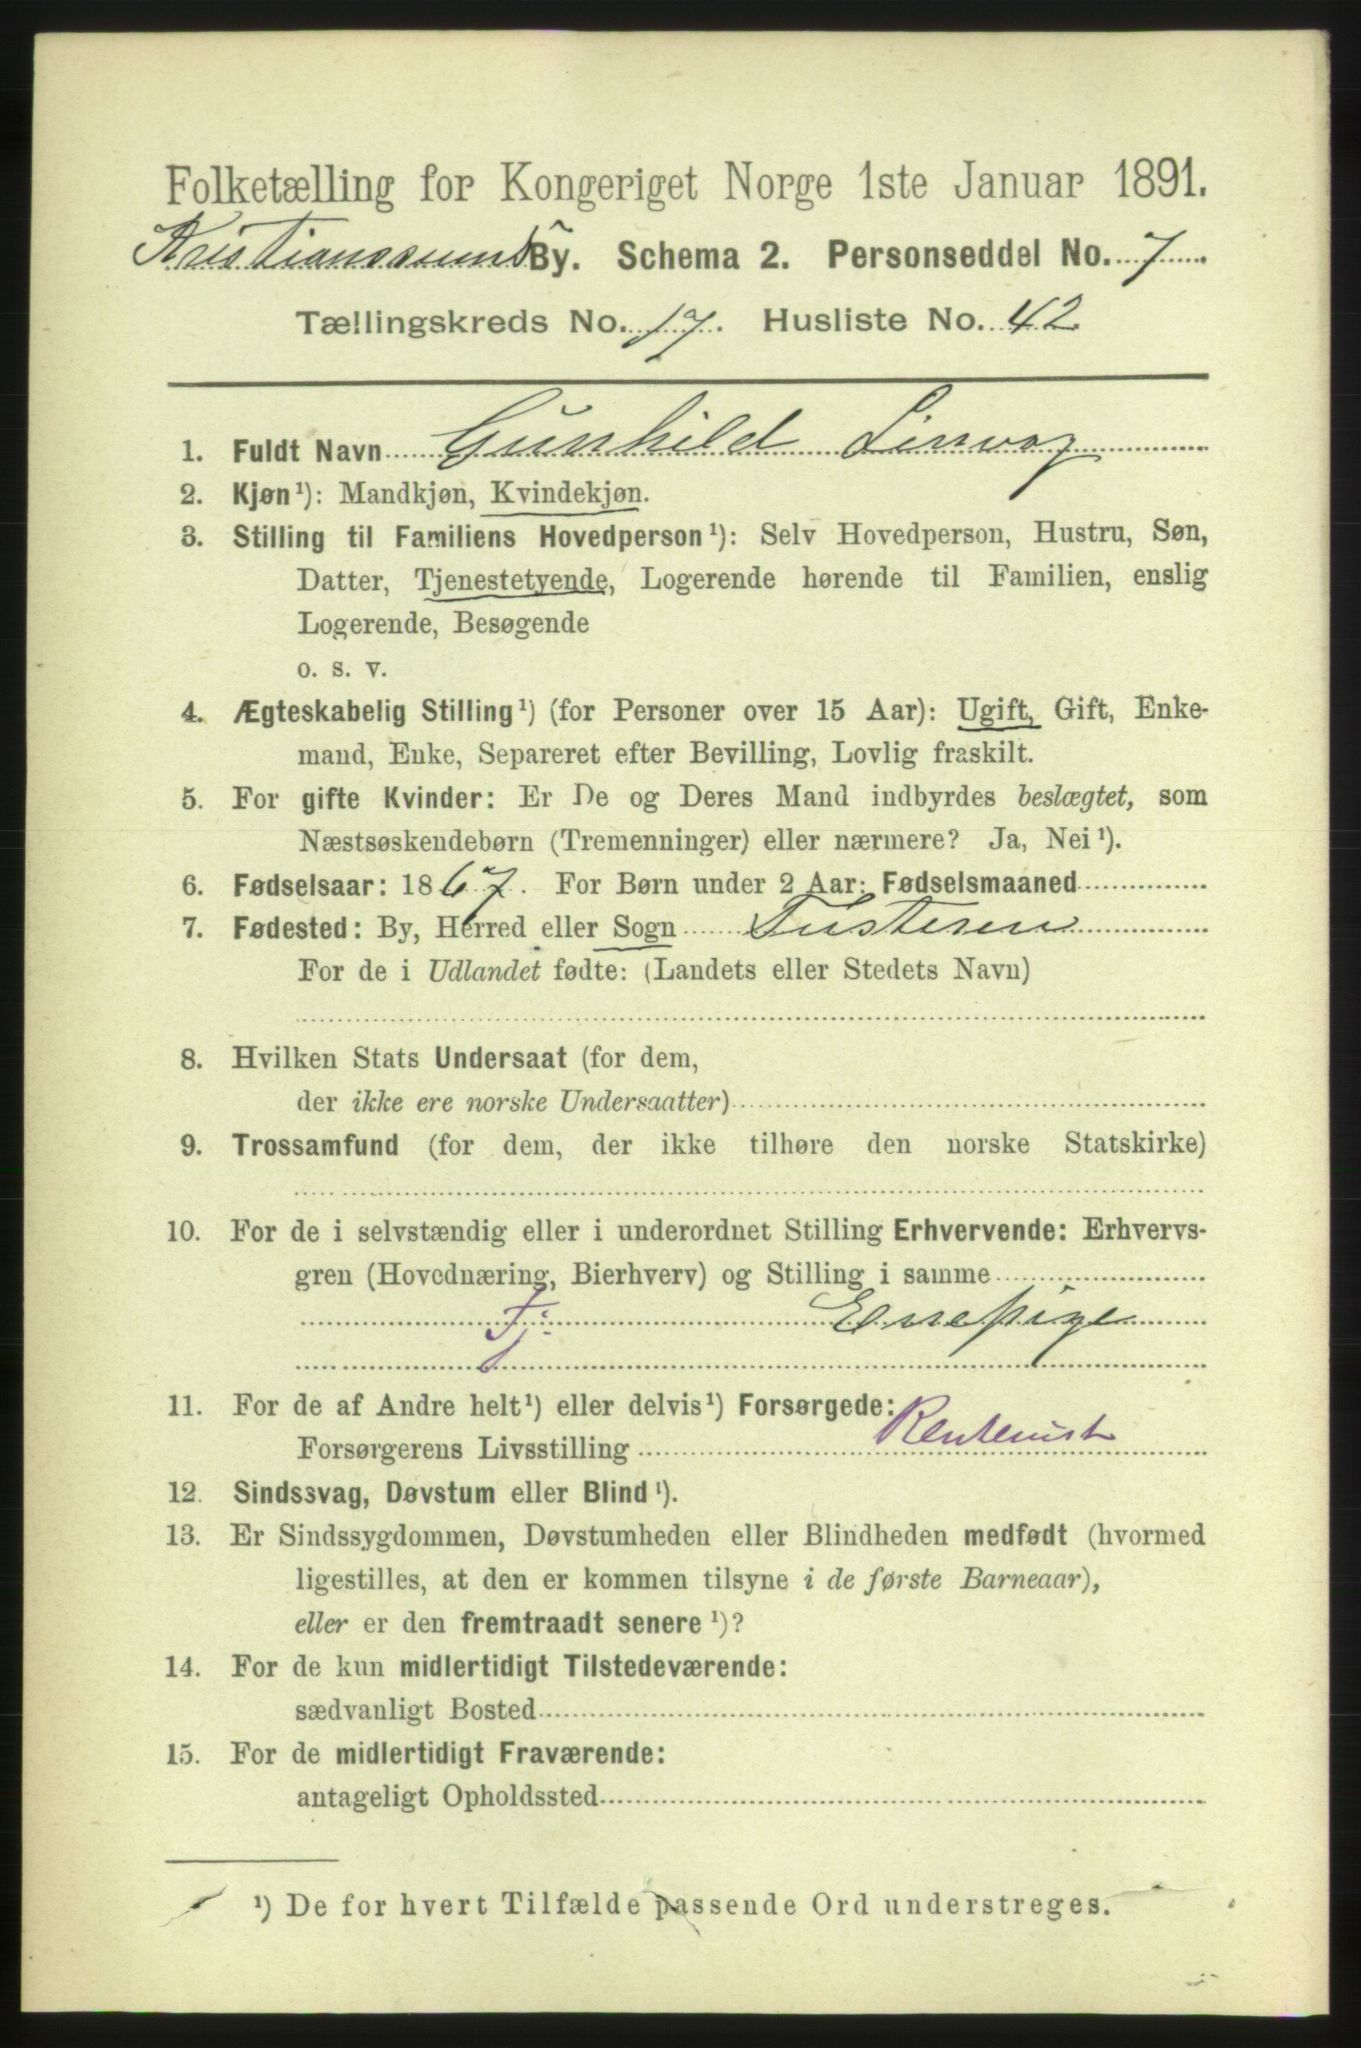 Folketælling for Kongeriget Norge 1ste Januar 1891.
Kristianssund By. Schema 2. Personseddel No. 7
Tællingskreds No. 17. Husliste No. 42
1. Fuldt Navn Gunhild Linvag
2. Kjøn¹): Mandkjøn, Kvindekjøn.
3. Stilling til Familiens Hovedperson¹): Selv Hovedperson, Hustru, Søn,
Datter, Tjenestetyende, Logerende hørende til Familien, enslig
Logerende, Besøgende
o. s. v.
4. Ægteskabelig Stilling¹) (for Personer over 15 Aar): Ugift, Gift, Enke-
mand, Enke, Separeret efter Bevilling, Lovlig fraskilt.
5. For gifte Kvinder: Er De og Deres Mand indbyrdes beslægtet, som
Næstsøskendebørn (Tremenninger) eller nærmere? Ja, Nei¹).
6. Fødselsaar: 1867. For Børn under 2 Aar: Fødselsmaaned
7. Fødested: By, Herred eller Sogn Tusteren
For de i Udlandet fødte: (Landets eller Stedets Navn)
8. Hvilken Stats Undersaat (for dem,
der ikke ere norske Undersaatter)
9. Trossamfund (for dem, der ikke tilhøre den norske Statskirke)
10. For de i selvstændig eller i underordnet Stilling Erhvervende: Erhvervs-
gren (Hovednæring, Bierhverv) og Stilling i samme
Tj. Enepige
11. For de af Andre helt¹) eller delvis¹) Forsørgede:
Forsørgerens Livsstilling Rentenist
12. Sindssvag, Døvstum eller Blind¹).
13. Er Sindssygdommen, Døvstumheden eller Blindheden medfødt (hvormed
ligestilles, at den er kommen tilsyne i de første Barneaar),
eller er den fremtraadt senere¹)?
14. For de kun midlertidigt Tilstedeværende:
sædvanligt Bosted
15. For de midlertidigt Fraværende:
antageligt Opholdssted
¹) De for hvert Tilfælde passende Ord understreges.